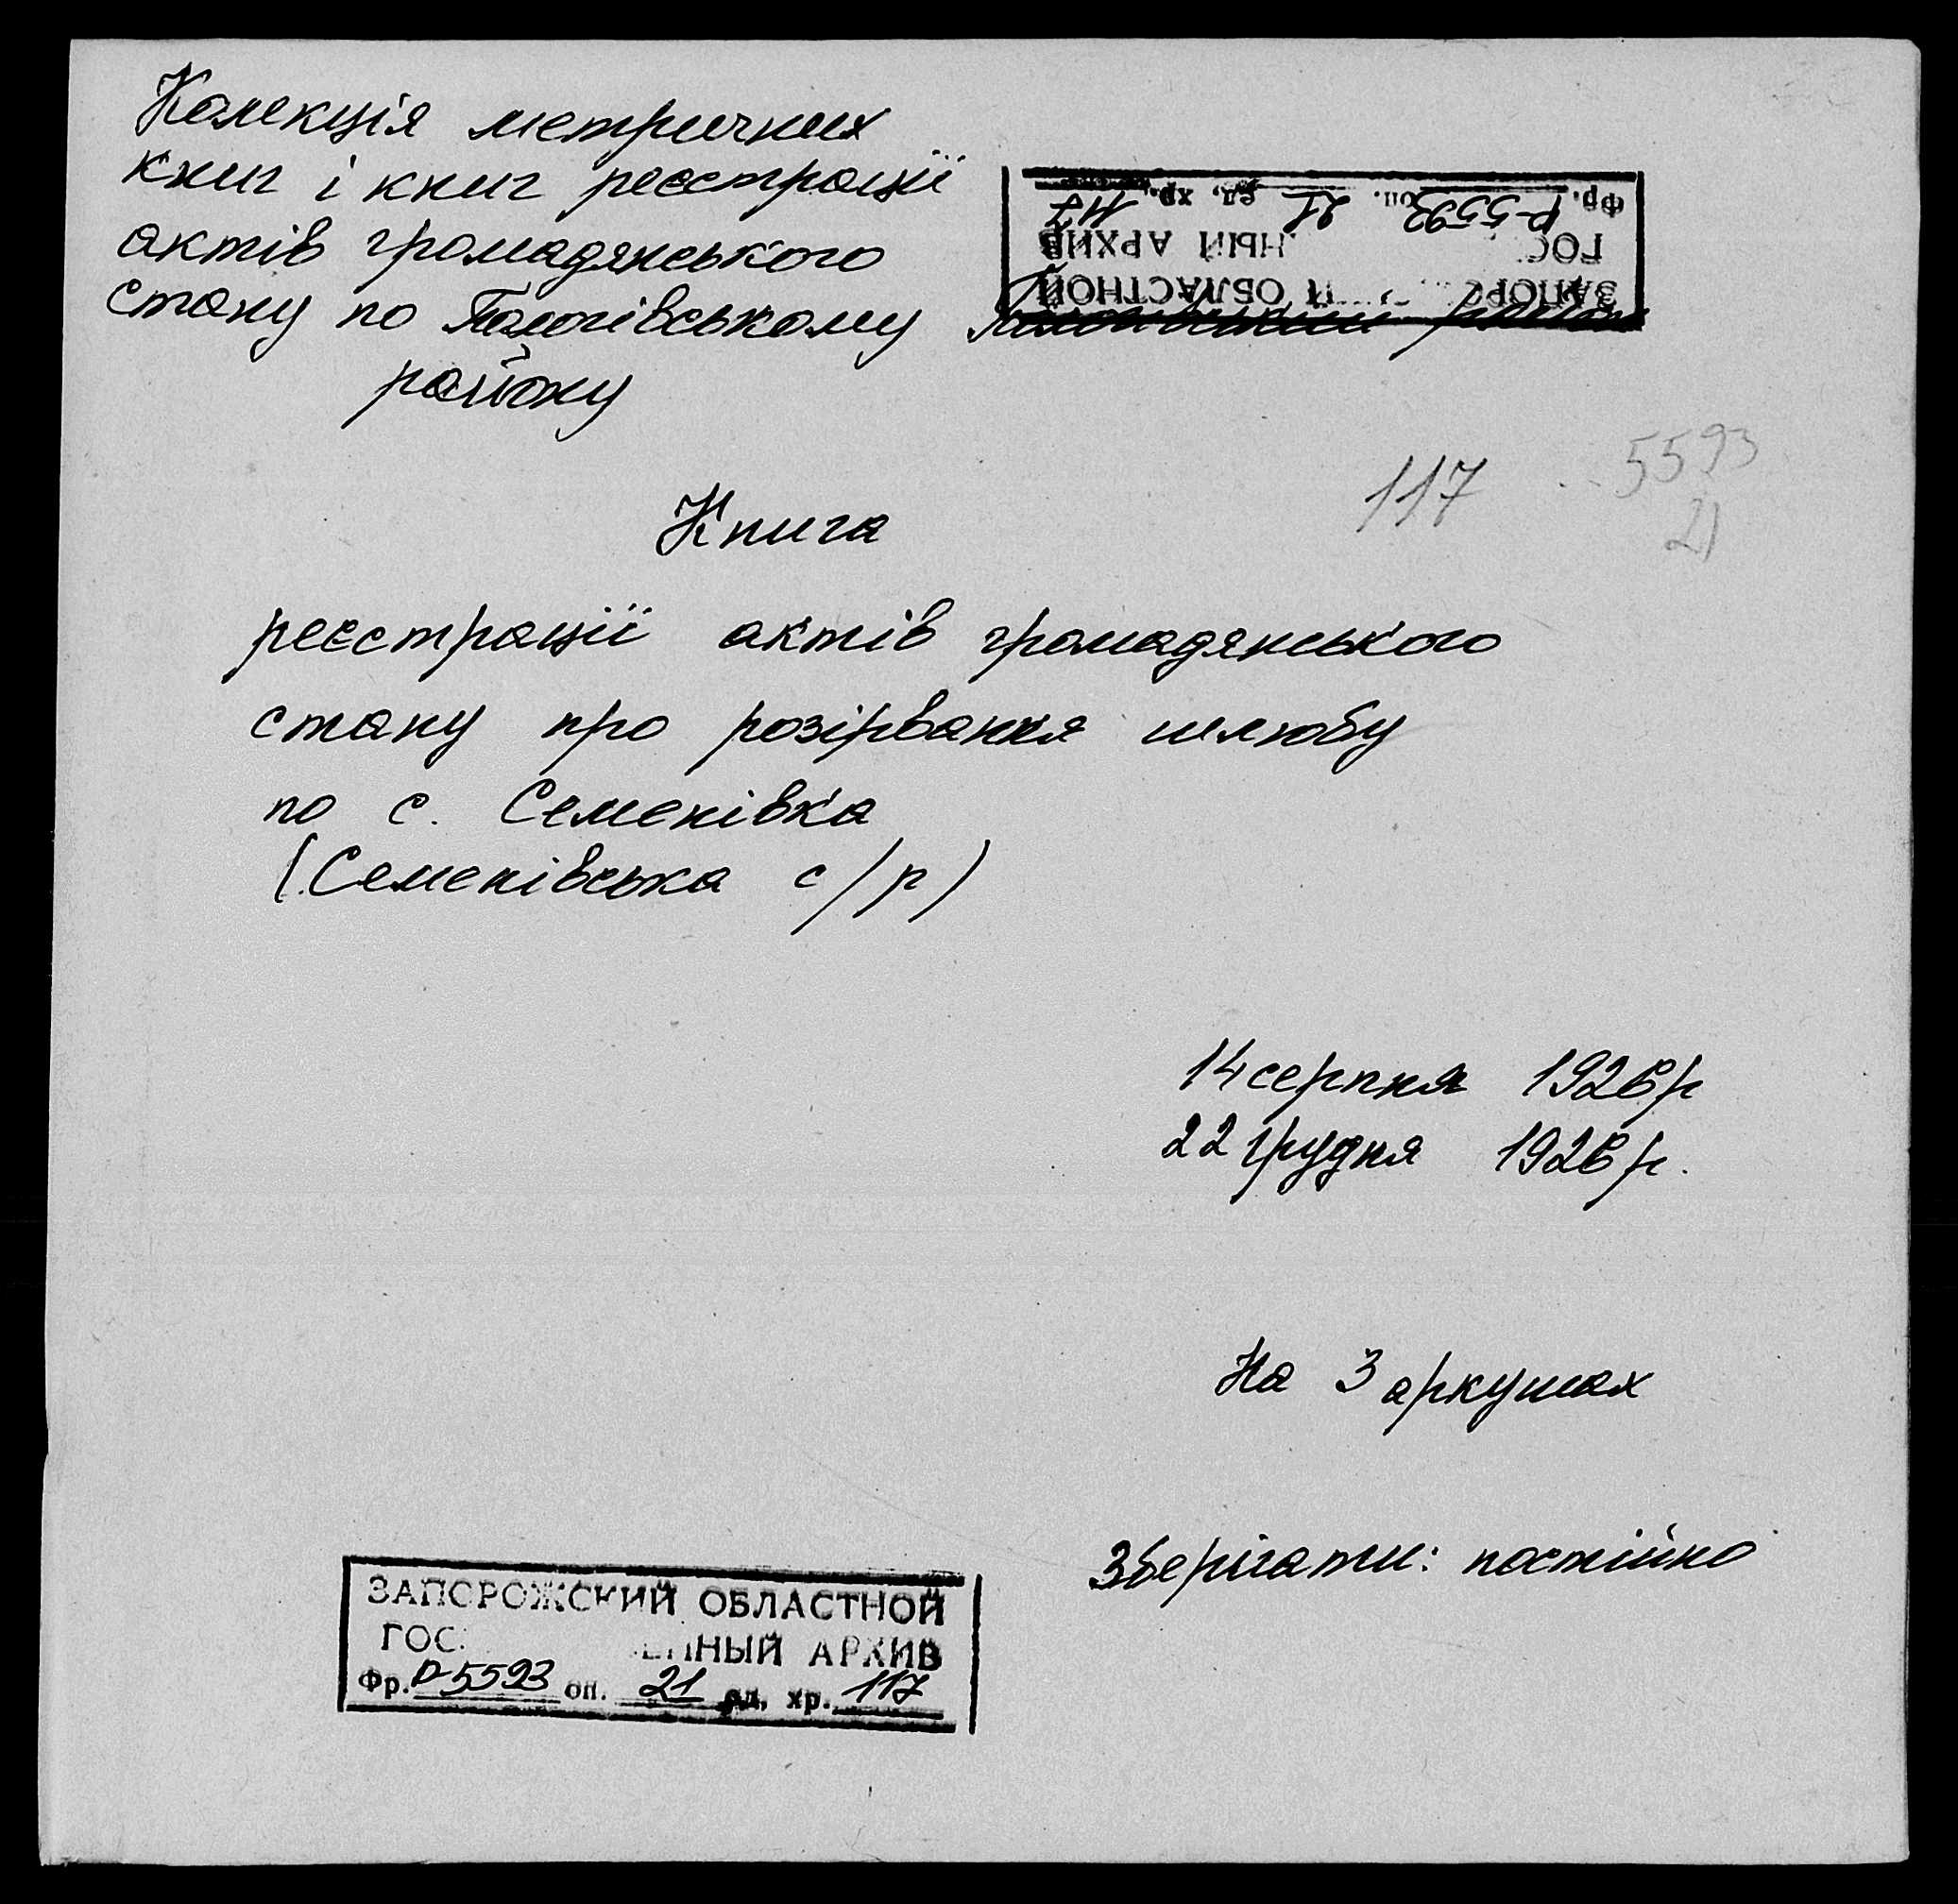 Колекція метричних
книг і книг реєстрації
актів громадянського
стану по Пологівському
району
Фр. Р-5593 оп. 21 ед. хр. 117
ГОС НЫЙ АРХИВ
ЗАПОРО Й ОБЛАСТНОЙ
117 5593
21
Книга
реєстрації актів громадянського
стану про розірвання шлюбу
по с. Семенівка
(Семенівська с/р)
14 серпня 1926 р
22 грудня 1926 р.
На 3 аркушах
Зберігати: постійно
ЗАПОРОЖСКИЙ ОБЛАСТНОЙ
ГОС ЕННЫЙ АРХИВ
Фр. Р-5593 оп. 21 ед. хр. 117